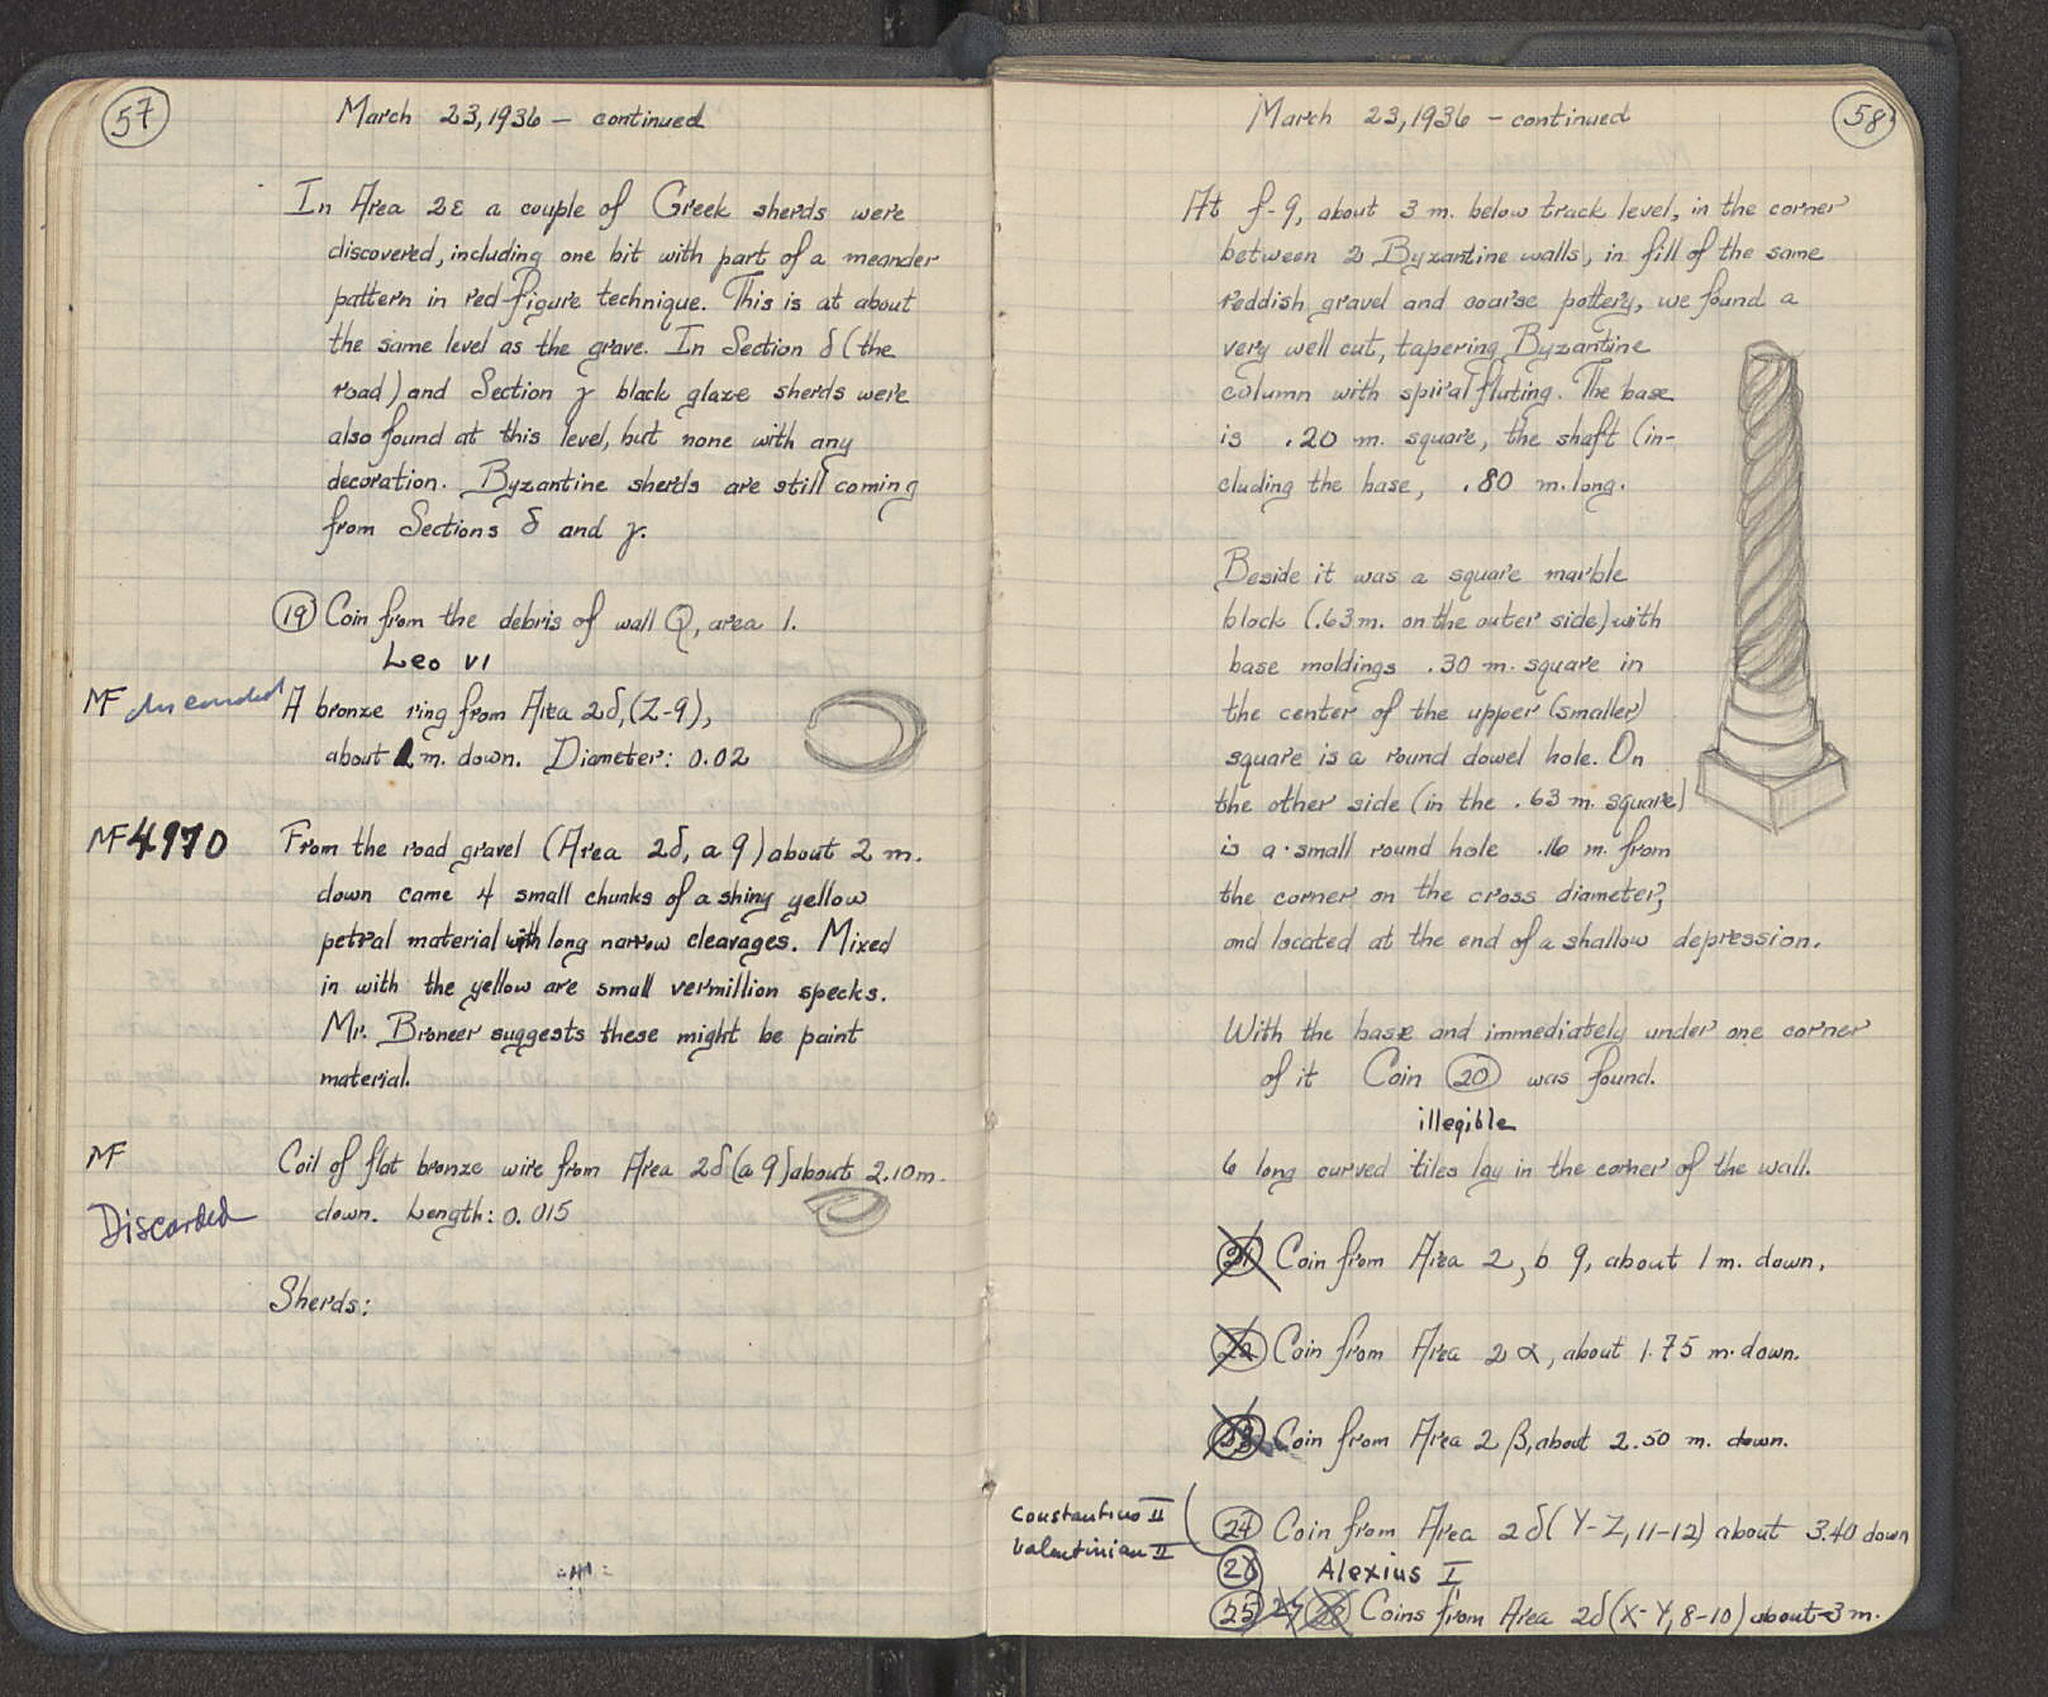 57
March 23, 1936 — continued
In Area 2ε a couple of Greek sherds were
discovered, including one bit with part of a meander
pattern in red-figure technique. This is at about
the same level as the grave. In Section δ (the
road) and Section γ black glaze sherds were
also found at this level, but none with any
decoration. Byzantine sherds are still coming
from Sections δ and γ.
19 Coin from the debris of wall Q, area 1.
Leo VI
MF
A bronze ring from Area 2δ, (Z-9),
about m. down. Diameter: 0.02
MF 4970
From the road gravel (Area 2δ, a 9) about 2 m.
down came 4 small chunks of a shiny yellow
petral material with long narrow cleavages. Mixed
in with the yellow are small vermillion specks.
Mr. Broneer suggests these might be paint
material.
MF
Coil of flat bronze wire from Area 2δ (a 9) about 2.10 m.
Discarded
down. Length: 0.015
Sherds:
58
March 23, 1936 — continued
At f-9, about 3 m. below track level, in the corner
between 2 Byzantine walls, in fill of the same
reddish gravel and coarse pottery, we found a
very well cut, tapering Byzantine
column with spiral fluting. The base
is .20 m. square, the shaft (in-
cluding the base, .80 m. long.
Beside it was a square marble
block (.63 m. on the outer side) with
base moldings .30 m. square in
the center of the upper (smaller)
square is a round dowel hole. On
the other side (in the .63 m. square)
is a small round hole .16 m. from
the corner on the cross diameter,
and located at the end of a shallow depression.
With the base and immediately under one corner
of it Coin 20 was found.
illegible
6 long curved tiles lay in the corner of the wall.
21 Coin from Area 2, b 9, about 1 m. down.
22 Coin from Area 2 α, about 1.75 m. down.
23 Coin from Area 2 β, about 2.50 m. down.
Constantius II
Valentinian II
24 Coin from Area 2 δ (Y-Z, 11-12) about 3.40 down
Alexius I
25 Coins from Area 2δ (X-Y, 8-10) about 3 m.